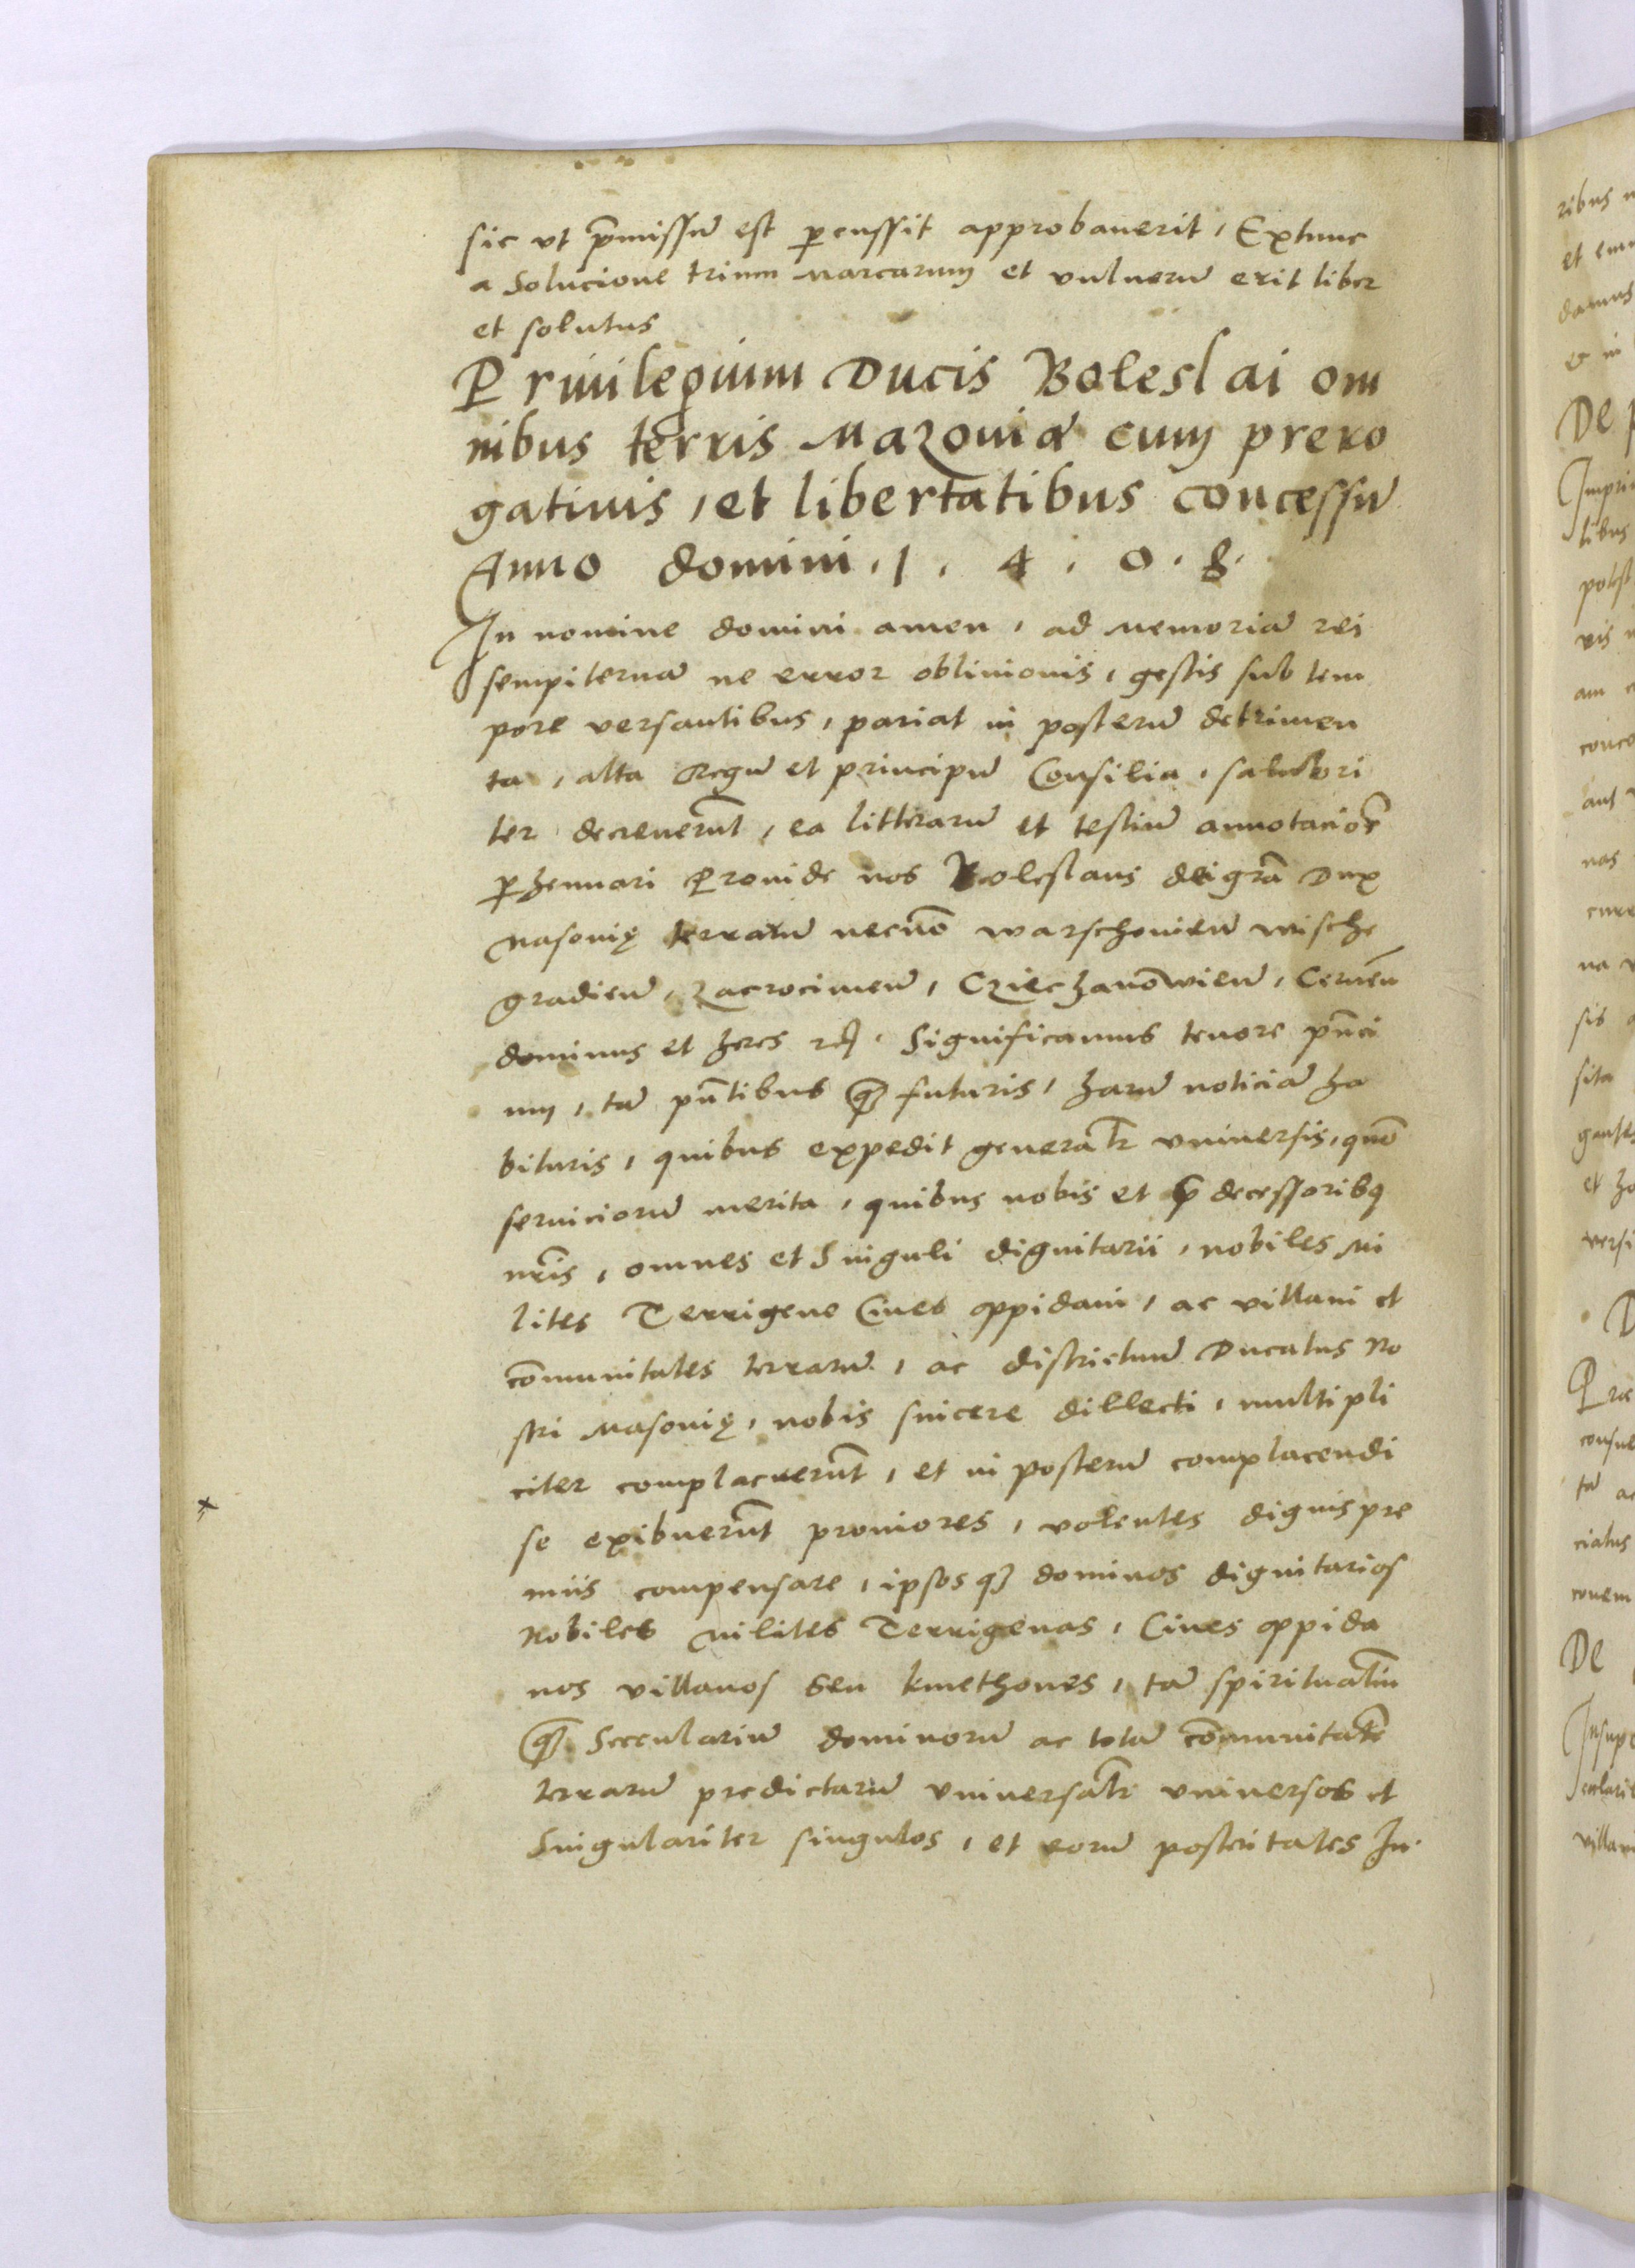 sic vt p̃missũ est percussit approbauerit, Extunc
a Solucione trium Marcarum et vulnerũ erit liber
et solutus
Priuilegium Ducis Boleslai om
nibus terris Mazouiæ cum prero
gatiuis, et libertatibus concessũ
Anno domini . 1 . 4 . 0 . 8 .
In nomine domini amen, ad Memoriã rei
sempiternã ne error obliuionis, gestis sub tem
pore versantibus, pariat in posterũ detrimen
ta, alta Regũ et principũ Consilia, salubri
ter decreuerũt, ea litterarũ et testiũ annotaciõe
perhennari Prouide nos Boleslaus dei grã Dux
Masouię terrarũ necnõ warschouieñ wische
gradieñ, Zacrocimeñ, Cziechanõwieñ, Cerneñ
dominus et heres etc. Significamus tenore pñci
um, tã pñtibus q̃ futuris, harũ noticiã ha
bituris, quibus expedit generalr̃ vniuersis, quõ
seruiciorũ merita, quibus nobis et p̃decessoribq
nr̃is, omnes et Singuli dignitarii, nobiles Mi
lites Terrigene Ciues oppidani, ac villani et
cõmunitates terrarũ, ac districtuũ Ducatus No
stri Masouię, nobis sincere dillecti, multipli
citer complacuerũt, et in posterũ complacendi
se exibuerũt proniores, volentes dignis pre
miis compensare, ipsos q3 dominos dignitarios
Nobiles Milites Terrigenas, Ciues oppida
nos villanos Seu kmethones, tã spiritualiũ
q̃ Seculariũ dominorũ ac totã cõmunitatẽ
terrarũ predictarũ vniuersalr̃ vniuersos et
Singulariter singulos, et eorũ posteritates In.